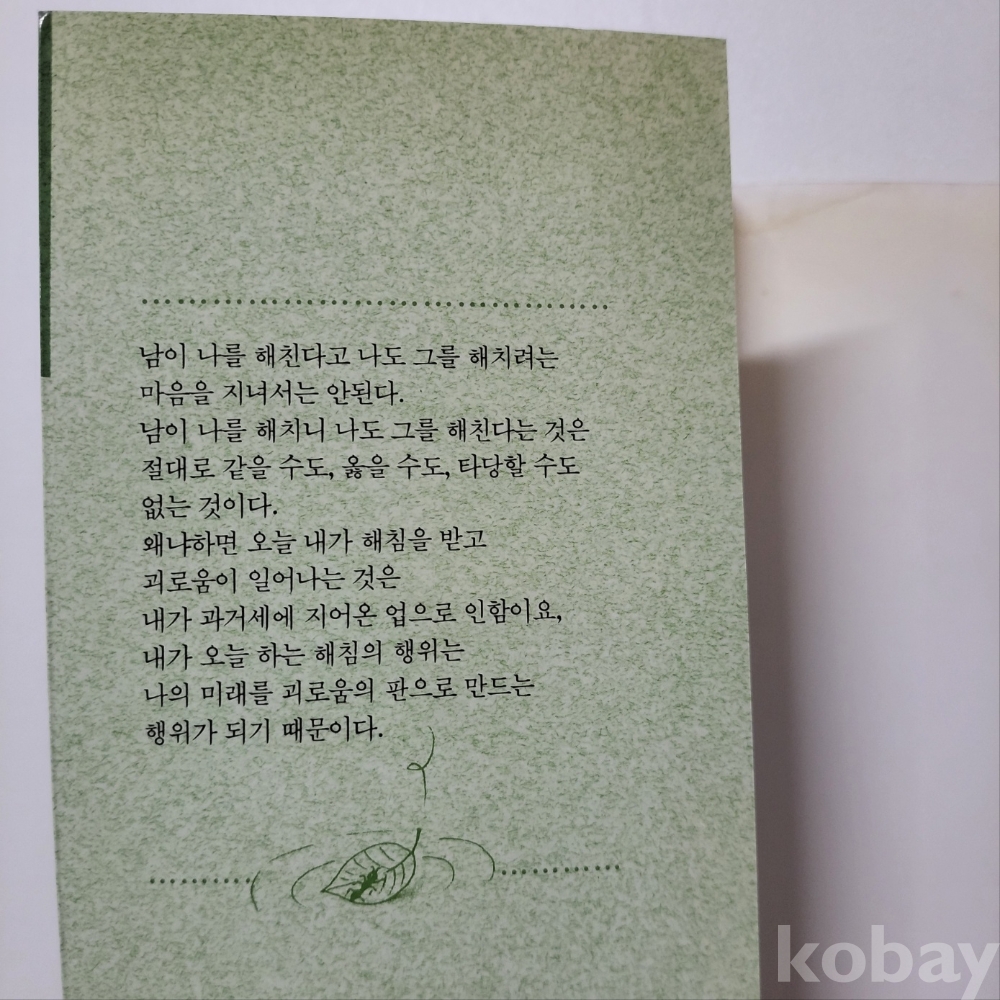 남이 나를 해친다고 나도 그를 해치려는
마음을 지녀서는 안된다.
남이 나를 해치니 나도 그를 해친다는 것은
절대로 같을 수도, 옳을 수도, 타당할 수도
없는 것이다.
왜냐하면 오늘 내가 해침을 받고
괴로움이 일어나는 것은
내가 과거세에 지어온 업으로 인함이요,
내가 오늘 하는 해침의 행위는
나의 미래를 괴로움의 판으로 만드는
행위가 되기 때문이다.
kobay